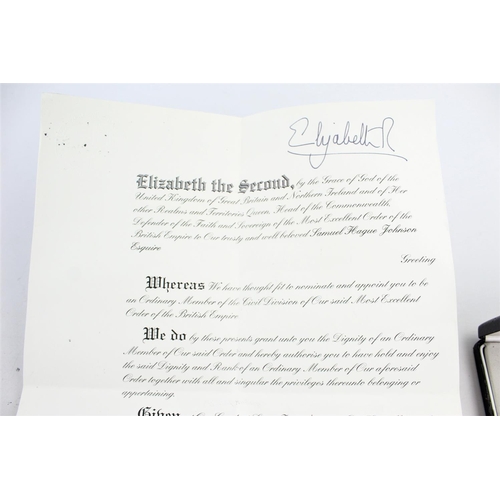 Elizabeth R
Elizabeth the Second, by the Grace of God of the
United Kingdom of Great Britain and Northern Ireland and of Her
other Realms and Territories Queen, Head of the Commonwealth,
Defender of the Faith and Sovereign of the Most Excellent Order of the
British Empire to Our trusty and well beloved Samuel Hague Johnson
Esquire
Greeting
Whereas We have thought fit to nominate and appoint you to be
an Ordinary Member of the Civil Division of Our said Most Excellent
Order of the British Empire
We do by these presents grant unto you the Dignity of an Ordinary
Member of Our said Order and hereby authorise you to have hold and enjoy
the said Dignity and Rank of an Ordinary Member of Our aforesaid
Order together with all and singular the privileges thereunto belonging or
appertaining.
Given